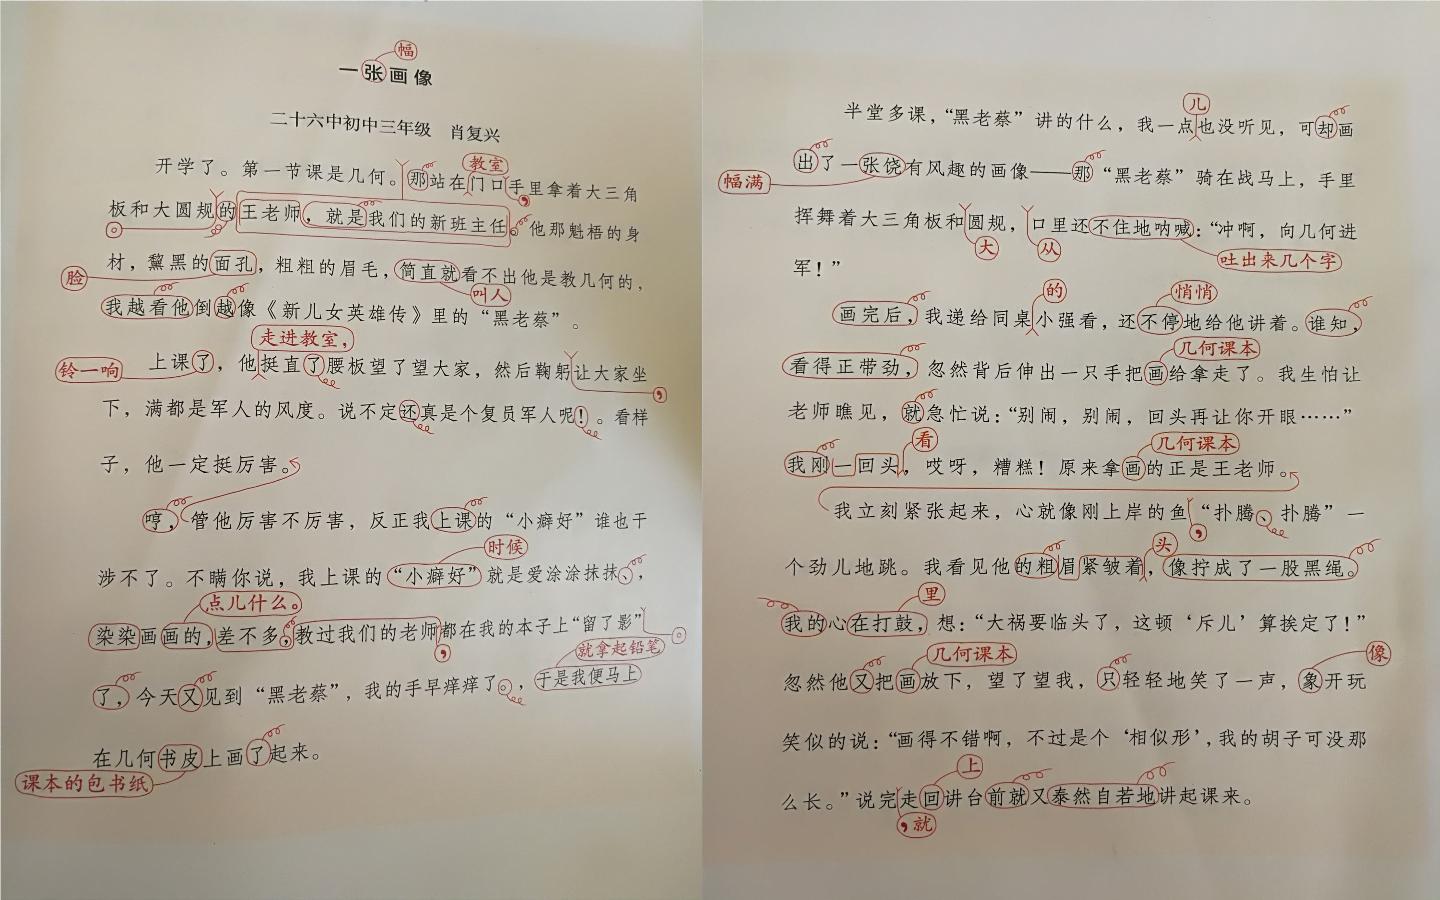 幅
一张画像
二十六中初中三年级 肖复兴
教室
开学了。第一节课是几何。那站在门口手里拿着大三角
，
板和大圆规的王老师，就是我们的新班主任。他那魁梧的身
。
材，黧黑的面孔，粗粗的眉毛，简直就看不出他是教几何的，
脸
叫人
我越看他倒越像《新儿女英雄传》里的“黑老蔡”。
走进教室，
上课了，他挺直了腰板望了望大家，然后鞠躬让大家坐
铃一响
，
下，满都是军人的风度。说不定还真是个复员军人呢！。看样
子，他一定挺厉害。
哼，管他厉害不厉害，反正我上课的“小癖好”谁也干
时候
涉不了。不瞒你说，我上课的“小癖好”就是爱涂涂抹抹、，
点儿什么。
染染画画的，差不多，教过我们的老师都在我的本子上“留了影”
，
。
就拿起铅笔
了，今天又见到“黑老蔡”，我的手早痒痒了。，于是我便马上
在几何书皮上画了起来。
课本的包书纸
儿
半堂多课，“黑老蔡”讲的什么，我一点也没听见，可却画
出了一张饶有风趣的画像——那“黑老蔡”骑在战马上，手里
幅满
挥舞着大三角板和圆规，口里还不住地呐喊：“冲啊，向几何进
大
从
吐出来几个字
军！”
的
悄悄
画完后，我递给同桌小强看，还不停地给他讲着。谁知，
几何课本
看得正带劲，忽然背后伸出一只手把画给拿走了。我生怕让
老师瞧见，就急忙说：“别闹，别闹，回头再让你开眼……”
看
几何课本
我刚一回头，哎呀，糟糕！原来拿画的正是王老师。
我立刻紧张起来，心就像刚上岸的鱼“扑腾、扑腾”一
，
头
个劲儿地跳。我看见他的粗眉紧皱着，像拧成了一股黑绳。
里
我的心在打鼓，想：“大祸要临头了，这顿‘斥儿’算挨定了！”
几何课本
像
忽然他又把画放下，望了望我，只轻轻地笑了一声，象开玩
笑似的说：“画得不错啊，不过是个‘相似形’，我的胡子可没那
上
么长。”说完走回讲台前就又泰然自若地讲起课来。
，就